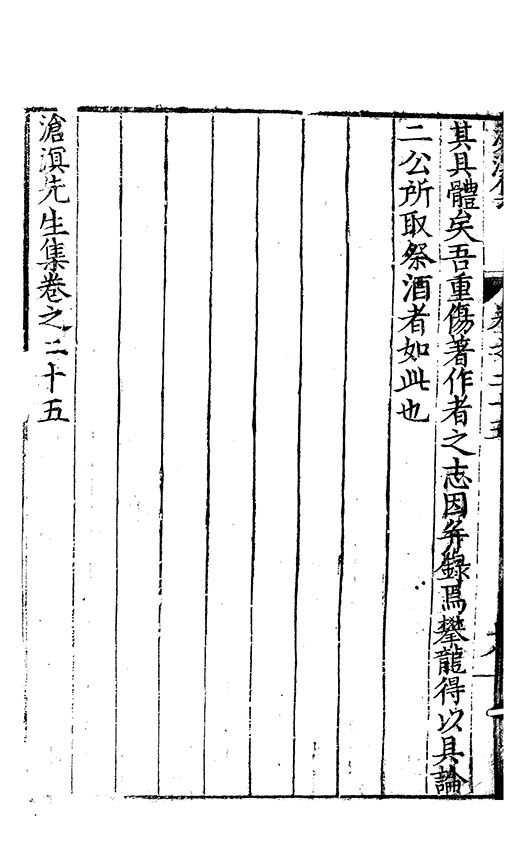 其具體矣吾重傷著作者之志因并錄焉攀龍得以具論
二公所取祭酒者如此也
滄溟先生集卷之二十五
卷之二十五